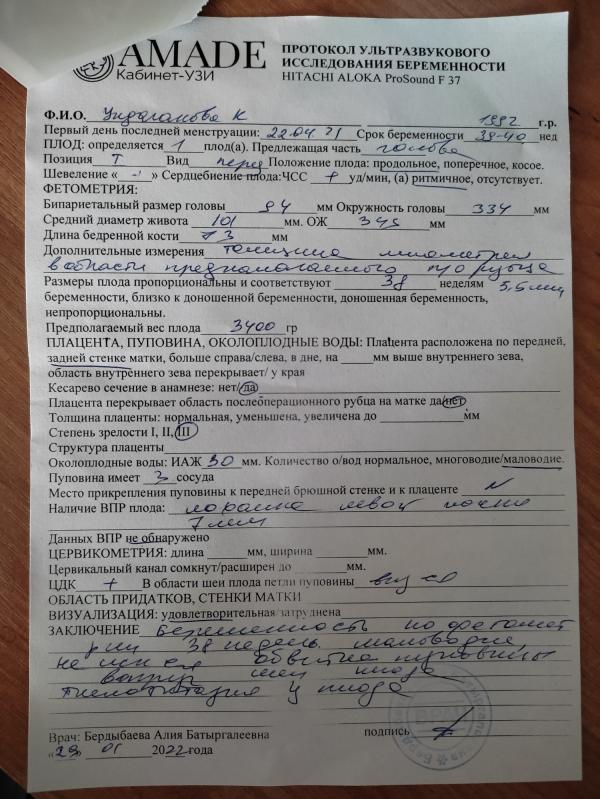 AMADE
Кабинет-УЗИ
ПРОТОКОЛ УЛЬТРАЗВУКОВОГО
ИССЛЕДОВАНИЯ БЕРЕМЕННОСТИ
HITACHI ALOKA ProSound F 37
Ф.И.О. К 1992 г.р.
Первый день последней менструации: 22.04 21 Срок беременности 39-40 нед
ПЛОД: определяется 1 плод(а). Предлежащая часть голова
Позиция I Вид перед Положение плода: продольное, поперечное, косое.
Шевеление « » Сердцебиение плода:ЧСС + уд/мин, (а) ритмичное, отсутствует.
ФЕТОМЕТРИЯ:
Бипариетальный размер головы 94 мм Окружность головы 334 мм
Средний диаметр живота 101 мм. ОЖ 345 мм
Длина бедренной кости 73 мм
Дополнительные измерения толщина миометрия
в области предполагаемого п/о рубца
Размеры плода пропорциональны и соответствуют 38 неделям 5,5 мм
беременности, близко к доношенной беременности, доношенная беременность,
непропорциональны.
Предполагаемый вес плода 3400 гр
ПЛАЦЕНТА, ПУПОВИНА, ОКОЛОПЛОДНЫЕ ВОДЫ: Плацента расположена по передней,
задней стенке матки, больше справа/слева, в дне, на мм выше внутреннего зева,
область внутреннего зева перекрывает/ у края
Кесарево сечение в анамнезе: нет/да
Плацента перекрывает область послеоперационного рубца на матке да/нет
Толщина плаценты: нормальная, уменьшена, увеличена до мм
Степень зрелости I, II, III
Структура плаценты
Околоплодные воды: ИАЖ 30 мм. Количество о/вод нормальное, многоводие/маловодие.
Пуповина имеет 3 сосуда
Место прикрепления пуповины к передней брюшной стенке и к плаценте N
Наличие ВПР плода: лоханка левой почки
7 мм
Данных ВПР не обнаружено
ЦЕРВИКОМЕТРИЯ: длина мм, ширина мм.
Цервикальный канал сомкнут/расширен до мм.
ЦДК + В области шеи плода петли пуповины
ОБЛАСТЬ ПРИДАТКОВ, СТЕНКИ МАТКИ
ВИЗУАЛИЗАЦИЯ: удовлетворительная/затруднена
ЗАКЛЮЧЕНИЕ Беременность по фетомет
рии 38 недель. маловодие,
обвитие пуповины
вокруг шеи плода
пиелоэктазия у плода
Врач: Бердыбаева Алия Батыргалеевна подпись
«29» 01 2022 года
ВРАЧ